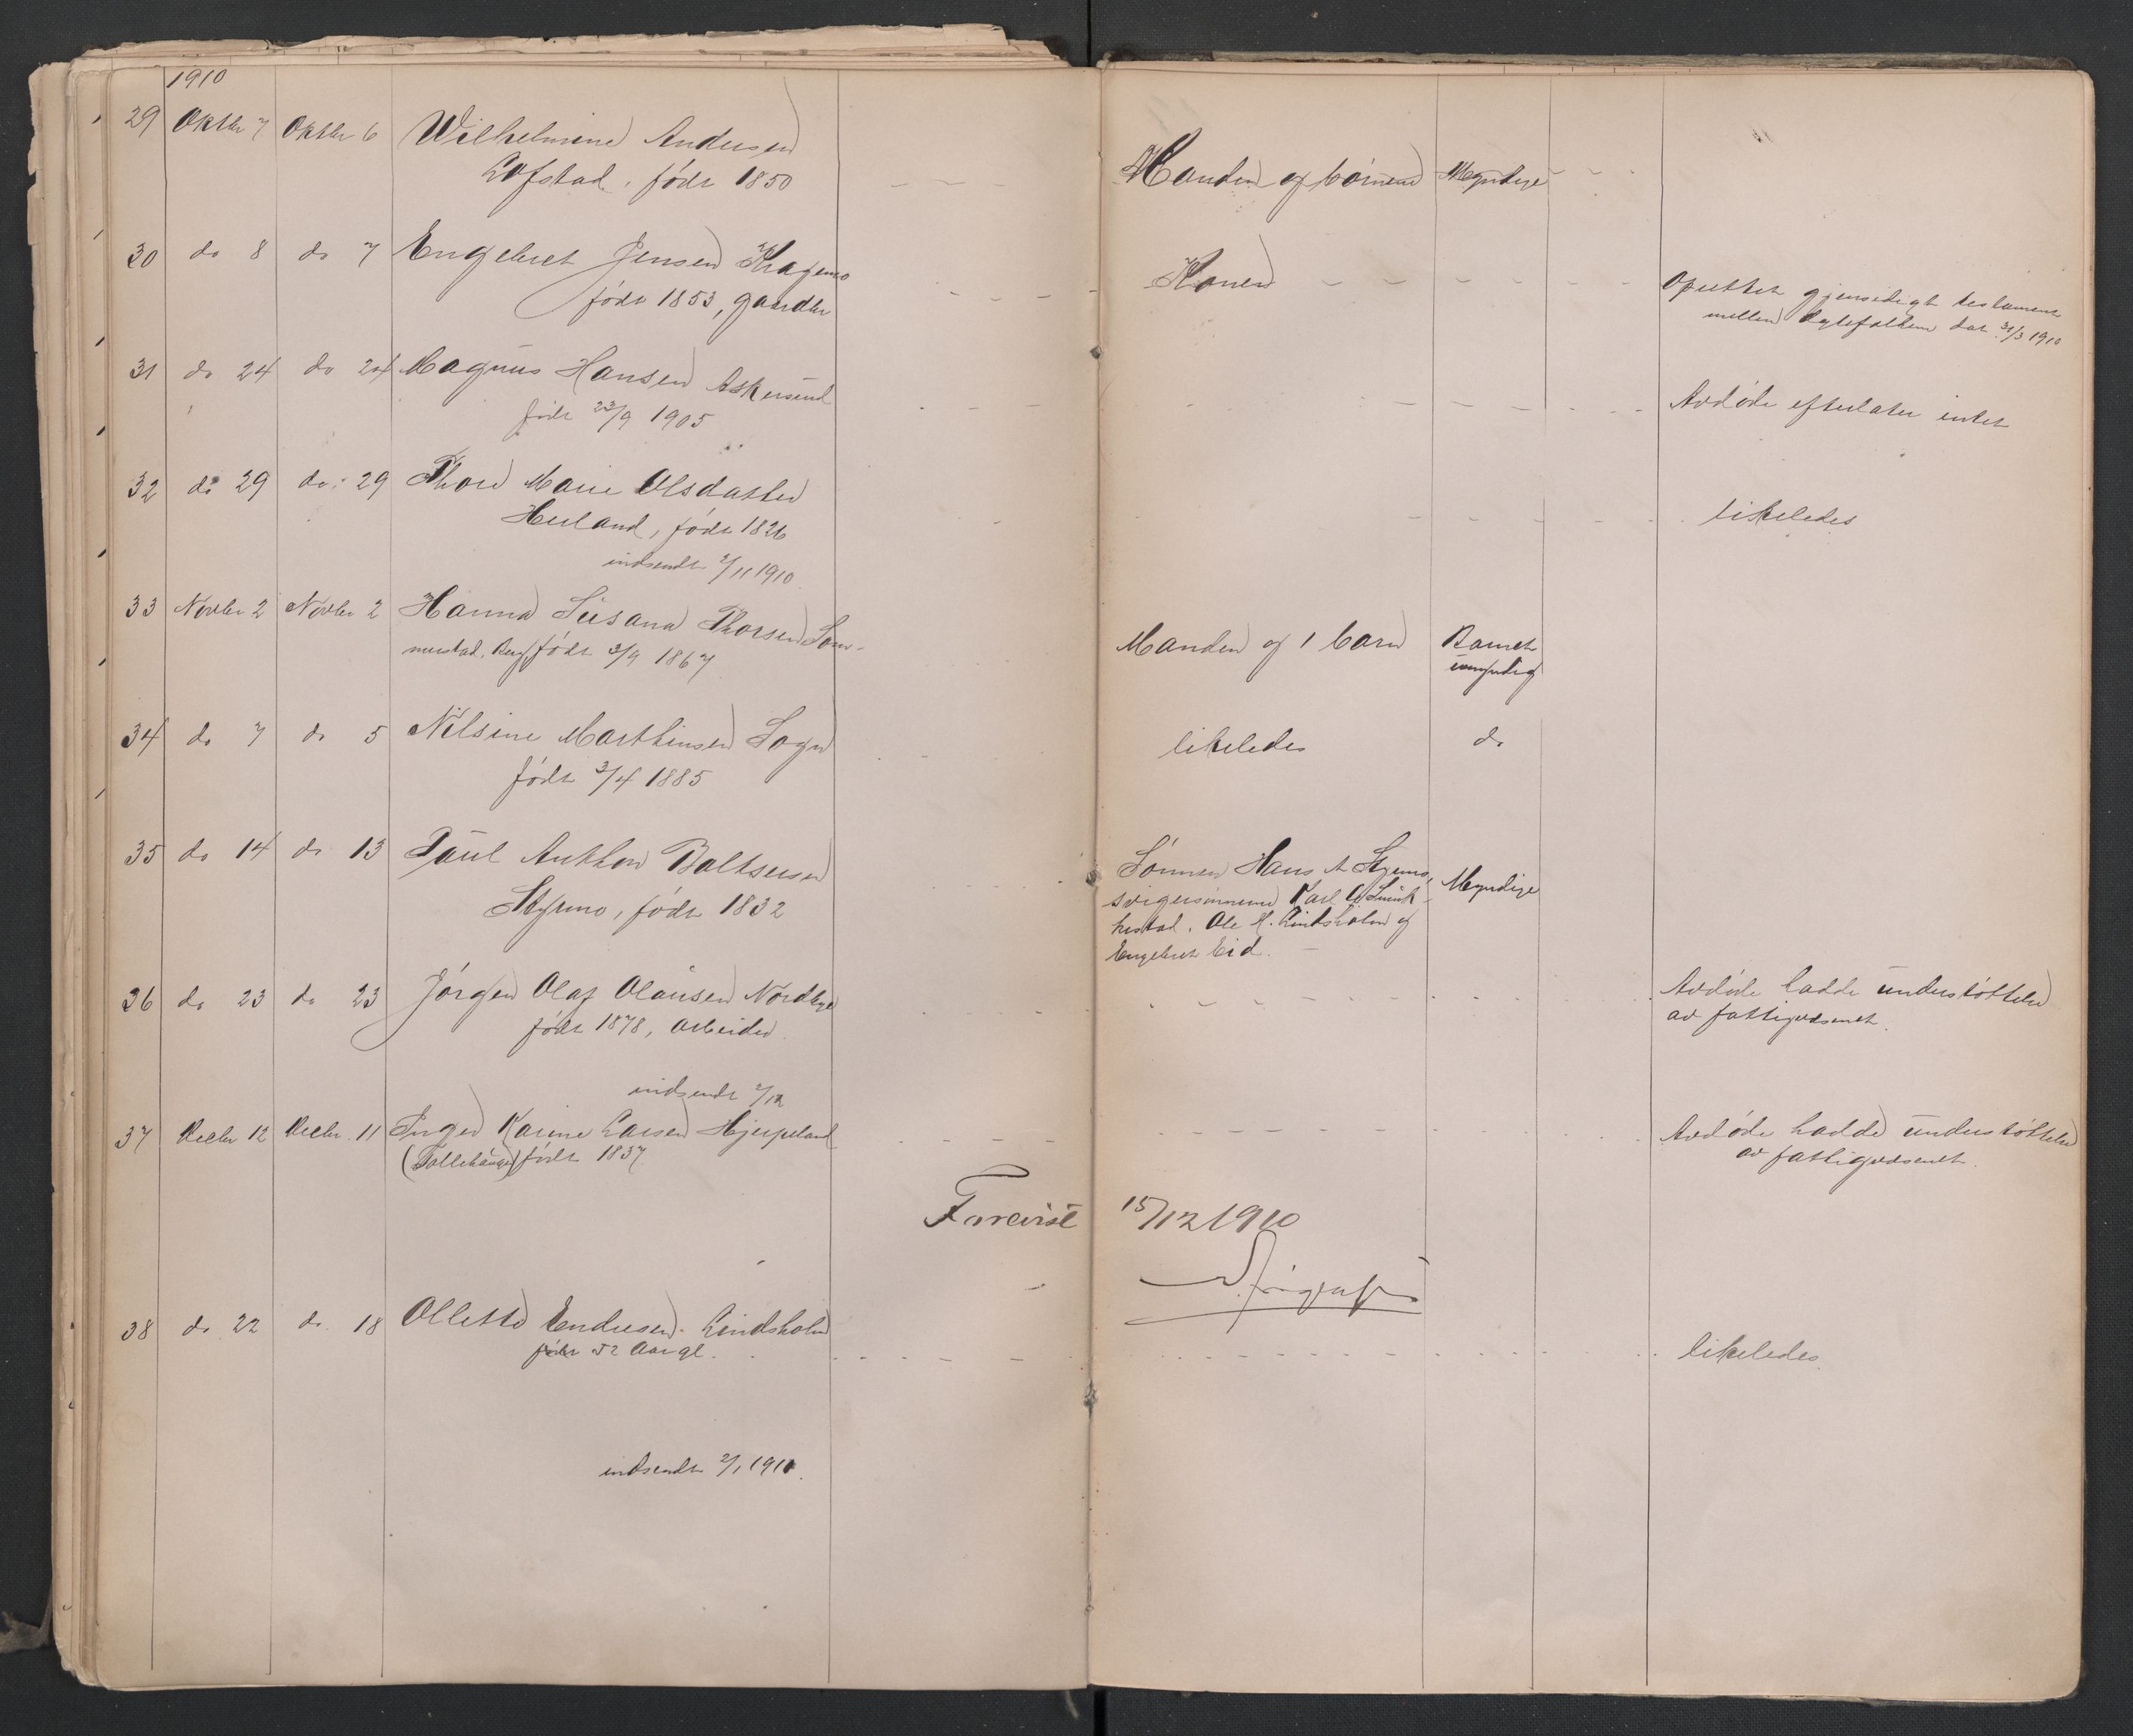 1910
29 Oktbr 7 Oktbr 6 Wilhelmine Andersen
Lofstad, født 1850
Manden og børnene Myndige
30 do 8 do 7 Engebret Jensen
født 1853, gaardbr
Konen
Oprettet gjensidigt testament
mellem ægtefolkene dat. 31/3 1910
31 do 24 do 24 Magnus Hansen Askersund
født 23/9 1905
Avdøde efterlater intet
32 do 29 do 29 Thore Marie Olsdatter
Herland, født 1826
likeledes
indsendt 2/11 1910
33 Novbr 2 Novbr 2 Hanna Susana Thorsen Som-
merstad, født 3/9 1867
Manden og 1 barn Barnet
umyndig
34 do 7 do 5 Nilsine Marthinsen Sogn
født 3/4 1885
likeledes do
35 do 14 do 13 Paul Anthon Baltsersen
Stymo, født 1832
Sønnen Hans A Stymo, Myndige
svigersønnene Karl
Ole H. Lindsholm og
Engebret Eid.
36 do 23 do 23 Jørgen Olaf Olausen Nordbye
født 1878, arbeider
Avdøde hadde understøttelse
av fattigvæsenet.
indsendt 2/12
37 Decbr 12 Decbr. 11 Inger Karine Larsen Hjerpeland
født 1837
Avdøde hadde understøttelse
av fattigvæsenet.
Forevist 15/12 1910
38 do 22 do 18 Olette Endresen Lindsholm
født 52 Aar gl.
likeledes
indsendt 2/1 1911.